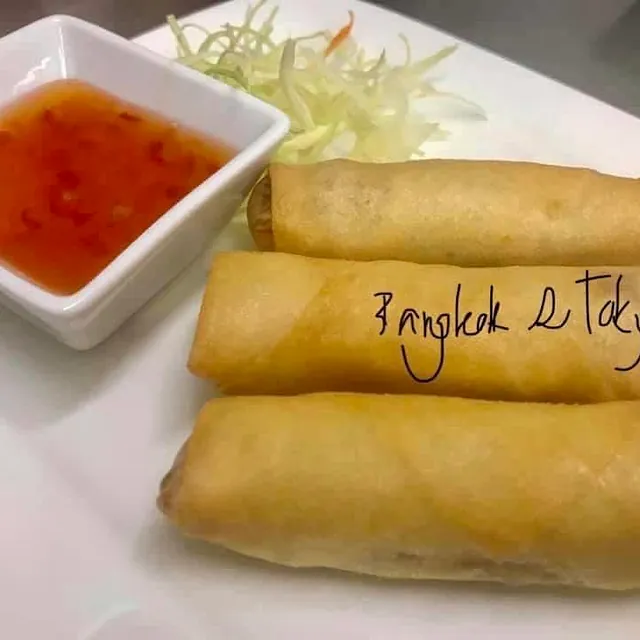 Bangkok & Toky